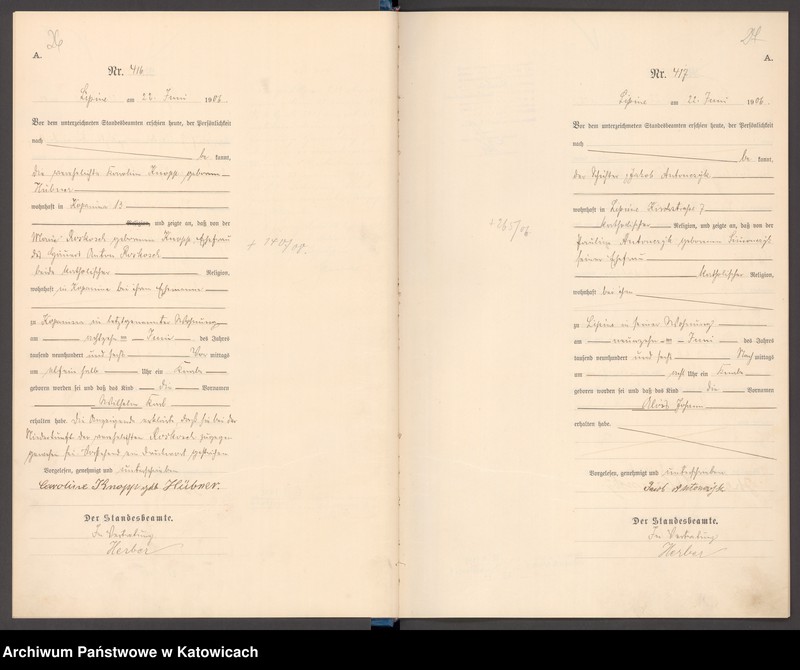 A.
Nr. 416
Lipine am 22 Juni 1906.
Vor dem unterzeichneten Standesbeamten erschien heute, der Persönlichkeit
nach
be kannt,
die verehelichte Karolin Knopp geborene
Hübner
wohnhaft in Kopanina 13
Religion, und zeigte an, daß von der
Marie Roskosch geborenen Knopp Ehefrau
des Anton Roskosch
beide katholischer Religion,
wohnhaft in Kopanina bei ihrem Ehemanne
zu Kopanina in letztgenannter Wohnung
am achtzehn ten Juni des Jahres
tausend neunhundert und sechs Vor mittags
um elfeinhalb Uhr ein Knabe
geboren worden sei und daß das Kind die Vornamen
Wilhelm Karl
erhalten habe. Die Anzeigende erklärte, daß sie bei der
Niederkunft der verehelichten Roskosch zugegen
gewesen sei. Vorstehend ein Druckwort gestrichen
Vorgelesen, genehmigt und unterschrieben
Caroline Knopp geb Hübner.
Der Standesbeamte.
In Vertretung
Herbor
A.
Nr. 417
Lipine am 22. Juni 1906.
Vor dem unterzeichneten Standesbeamten erschien heute, der Persönlichkeit
nach
be kannt,
der Jakob Antonczyk
wohnhaft in Lipine 7
katholischer Religion, und zeigte an, daß von der
Pauline Antonczyk geborenen
seiner Ehefrau
katholischer Religion,
wohnhaft bei ihm
zu Lipine in seiner Wohnung
am neunzehn ten Juni des Jahres
tausend neunhundert und sechs Nach mittags
um acht Uhr ein Knabe
geboren worden sei und daß das Kind die Vornamen
Alois Johann
erhalten habe.
Vorgelesen, genehmigt und unterschrieben
Jacob Antonczyk
Der Standesbeamte.
In Vertretung
Herbor
Archiwum Państwowe w Katowicach